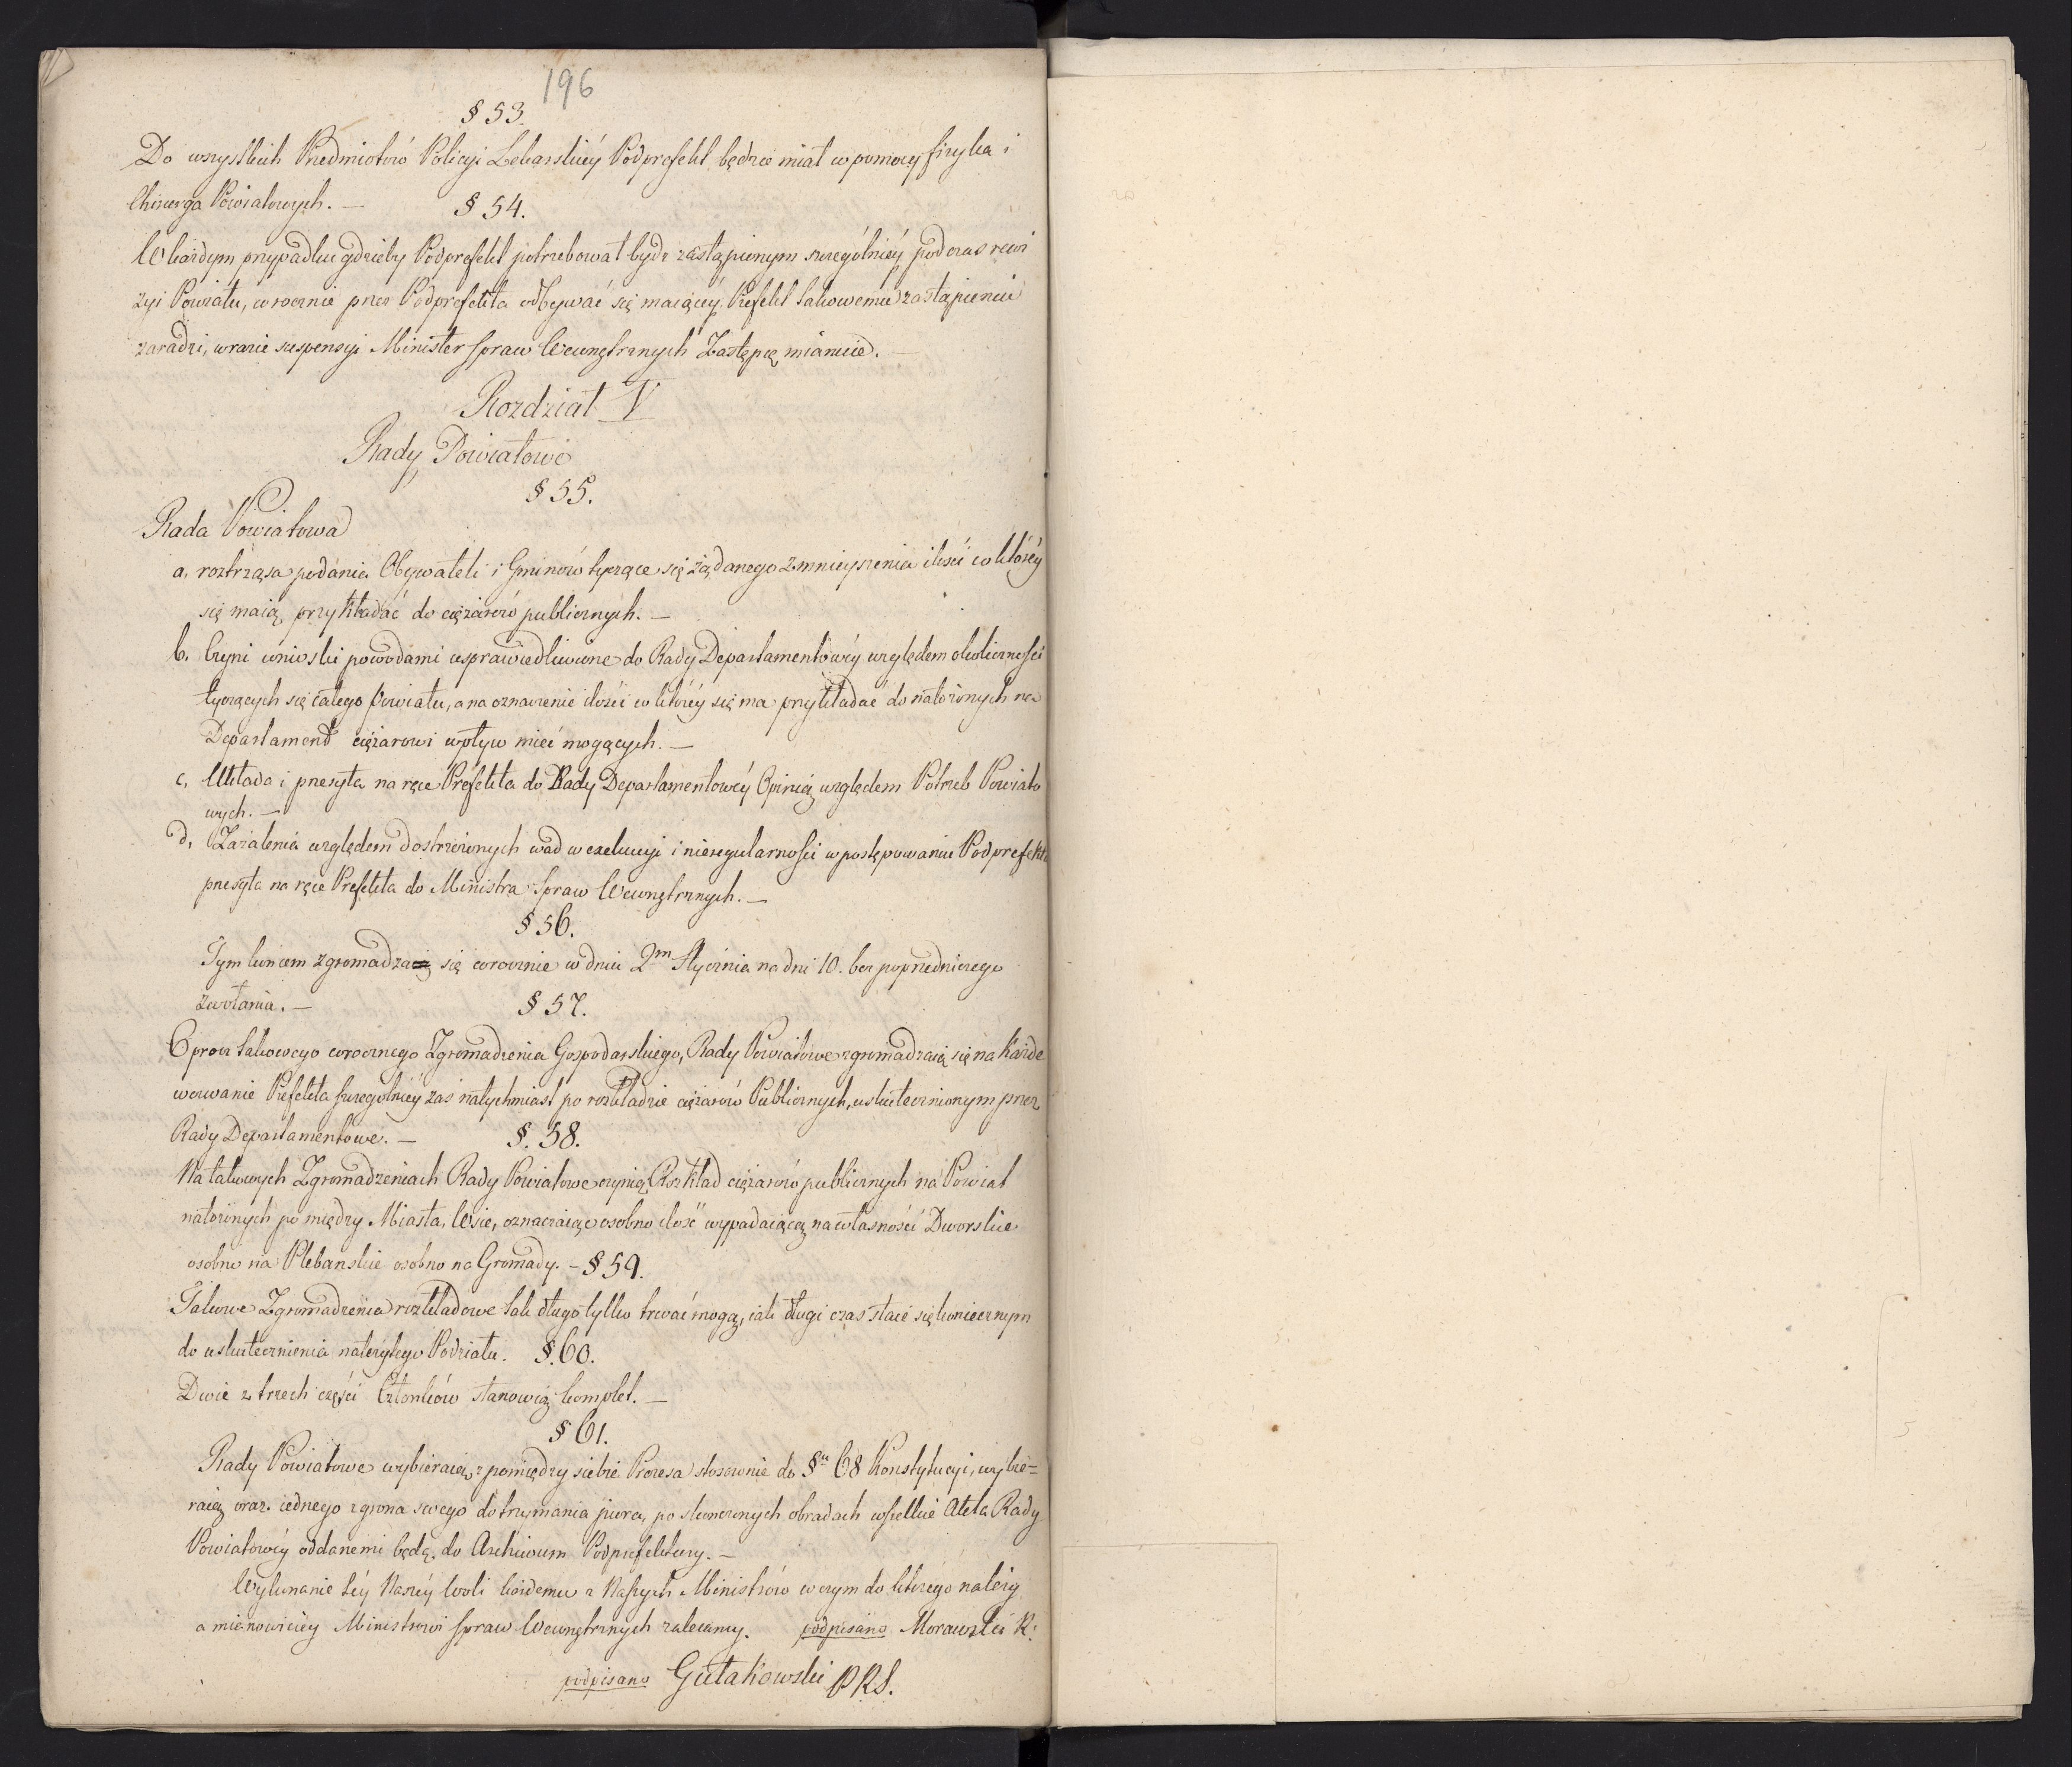 196
§ 53.
Do wszystkich Przedmiotów Policyi Lekarskiéy Podprefekt będzie miał w pomocy fizyka i
Chirurga Powiatowych. —
§ 54.
W każdym przypadku gdzieby Podprefekt potrzebował bydź zastąpionym szczególniéy podczas rewi
zyi Powiatu, corocznie przez Podprefekta odbywać się maiącéy, Prefekt takowemu zastąpieniu
zaradzi, w razie suspensyi Minister Spraw Wewnętrznych Zastępcę mianuie. —
Rozdział V
Rady Powiatowe
§ 55.
Rada Powiatowa
a, roztrząsa podania Obywateli i Gminów tyczące się żądanego zmnieyszenia ilości w któréy
się maią przykładać do ciężarów publicznych. —
b. Czyni wnioski powodami usprawiedliwione do Rady Departamentowéy względem okoliczności
tyczących się całego Powiatu, a na oznaczenie ilości w któréy się ma przykładać do nałożonych na
Departament ciężarowi wpływ mieć mogących. —
c, Układa i przesyła na ręce Prefekta do Rady Departamentowéy Opinią względem Potrzeb Powiato
wych. —
d, Zażalenia względem dostrzeżonych wad w exekucyi i nieregularności w postępowaniu Podprefekta
przesyła na ręce Prefekta do Ministra Spraw Wewnętrznych. —
§ 56.
Tym końcem zgromadza się corocznie w dniu 2m Stycznia na dni 10. bez poprzedniczego
zwołania. —
§ 57.
Oprócz takowego corocznego Zgromadzenia Gospodarskiego, Rady Powiatowe zgromadzaią się na każde
wezwanie Prefekta szczególniéy zaś natychmiast po rozkładzie ciężarów Publicznych, uskutecznionym przez
Rady Departamentowe. —
§. 58.
Na takowych Zgromadzeniach Rady Powiatowe czynią Rozkład ciężarów publicznych na Powiat
nałożonych pomiędzy Miasta, Wsie, oznaczaiąc osobno ilość wypadaiącą na własności Dworskie
osobno na Plebanskie osobno na Gromady. — § 59.
Takowe Zgromadzenia rozkładowe tak długo tylko trwać mogą, iak długi czas staie się koniecznym
do uskutecznienia należytego Podziału. §. 60.
Dwie z trzech części Członków stanowią komplet. —
§ 61.
Rady Powiatowe wybieraią z pomiędzy siebie Prezesa stosownie do §u 68 Konstytucyi, wybie=
raią oraz iednego z grona swego do trzymania pióra, po skończonych obradach wszelkie Akta Rady
Powiatowéy oddanemi będą do Archiwum Podprefektury. —
Wykonanie téy Naszéy Woli każdemu z Naszych Ministrów w czym do którego należy
a mianowiciéy Ministrowi Spraw Wewnętrznych zalecamy. podpisano Morawski R:
podpisano Gutakowski PRS.